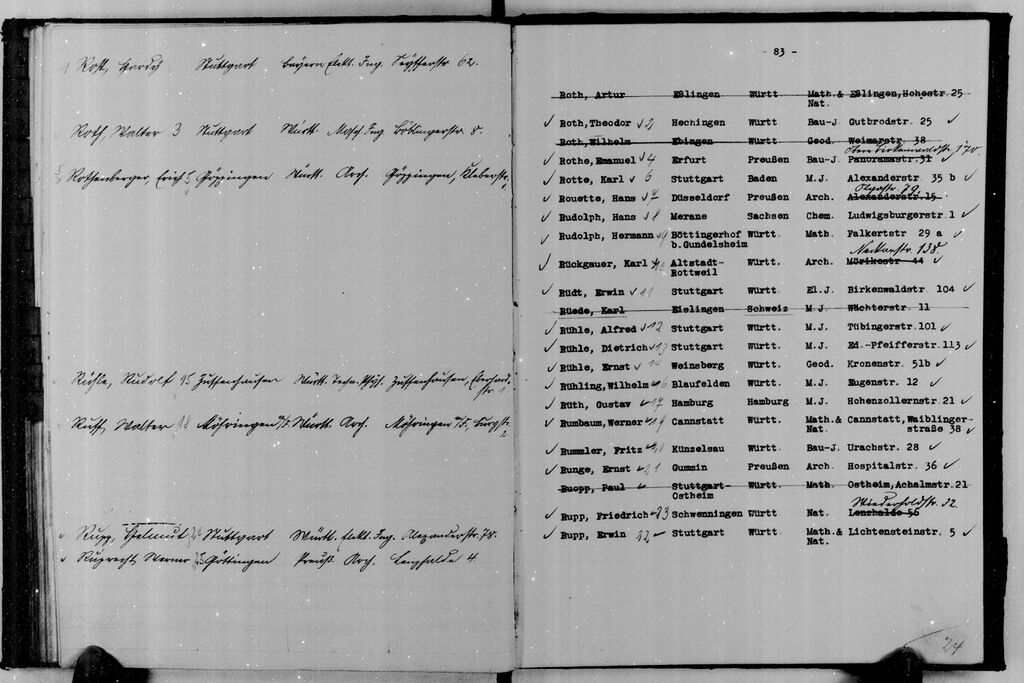 Rott, Stuttgart Bayern Elekt. Ing. Seyfferstr. 62.
Roth, Walter 3 Stuttgart Württ. Masch. Ing. Böblingerstr. 8.
Rothenberger, Erich 5 Göppingen Württ. Arch. Göppingen,
Rühle, Rudolf 15 Zuffenhausen Württ. Techn. Phys. Zuffenhausen, Eberhard-
str. 1
Ruff, Walter 18 Möhringen a/F. Württ. Arch. Möhringen a/F., Burgstr.
2
Rupp, Helmut 24 Stuttgart Württ. Elekt. Ing. Alexanderstr. 78.
Ruprecht Werner 25 Göttingen Preuß. Arch. Lenzhalde 4
- 83 -
Roth, Artur Eßlingen Württ Math.& Eßlingen,Hohestr. 25
Nat.
Roth,Theodor 2 Hechingen Württ Bau-J. Gutbrodstr. 25
Roth,Wilhelm Ebingen Württ Geod. Weimarstr. 38
Obere Birkenwaldstr. 170.
Rothe,Emanuel 4 Erfurt Preußen Bau-J. Panoramastr. 31
Rotte, Karl 6 Stuttgart Baden M.J. Alexanderstr. 35 b
Olgastr. 79.
Rouette, Hans 7 Düsseldorf Preußen Arch. Alexanderstr. 15
Rudolph, Hans 8 Merane Sachsen Chem. Ludwigsburgerstr. 1
Rudolph, Hermann 9 Böttingerhof Württ. Math. Falkertstr 29 a
b.Gundelsheim
Neckarstr. 138.
Rückgauer, Karl 10 Altstadt- Württ. Arch. Mörikestr 44
Rottweil
Rüdt, Erwin 11 Stuttgart Württ. El.J. Birkenwaldstr. 104
Rüede, Karl Eislingen Schweiz M.J. Wächterstr. 11
Rühle, Alfred 12 Stuttgart Württ. M.J. Tübingerstr. 101
Rühle, Dietrich 13 Stuttgart Württ. M.J. Ed.-Pfeifferstr. 113
Rühle, Ernst 14 Weinsberg Württ. Geod. Kronenstr. 51b
Rühling,Wilhelm 16 Blaufelden Württ. M.J. Eugenstr. 12
Rüth, Gustav 17 Hamburg Hamburg M.J. Hohenzollernstr. 21
Rumbaum,Werner 19 Cannstatt Württ. Math.& Cannstatt, Waiblinger-
Nat. straße 38
Rummler, Fritz 20 Künzelsau Württ. Bau-J. Urachstr. 28
Runge, Ernst 21 Gummin Preußen Arch. Hospitalstr. 36
Ruopp, Paul Stuttgart- Württ. Math. Ostheim,Achalmstr. 21
Ostheim
Wiederholdstr. 32.
Rupp, Friedrich 23 Schwenningen Württ Nat. Lenzhalde 56
Rupp, Erwin 22 Stuttgart Württ. Math.& Lichtensteinstr. 5
Nat.
24